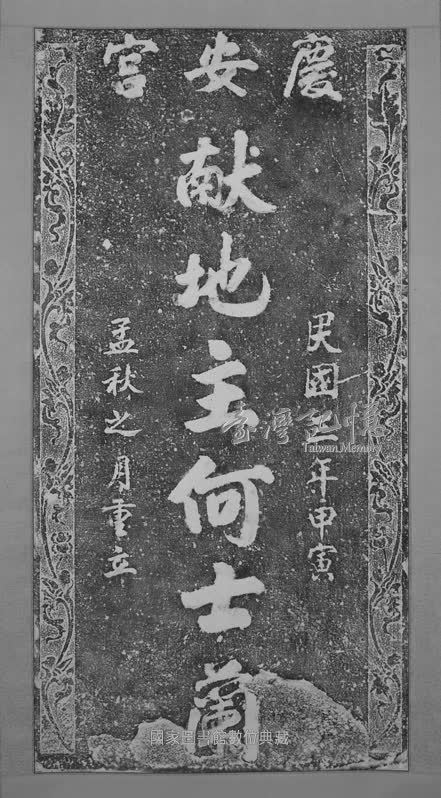 慶安宮
民國三年甲寅
献地主何士蘭
孟秋之月重立
臺灣記憶
Taiwan Memory
國家圖書館數位典藏